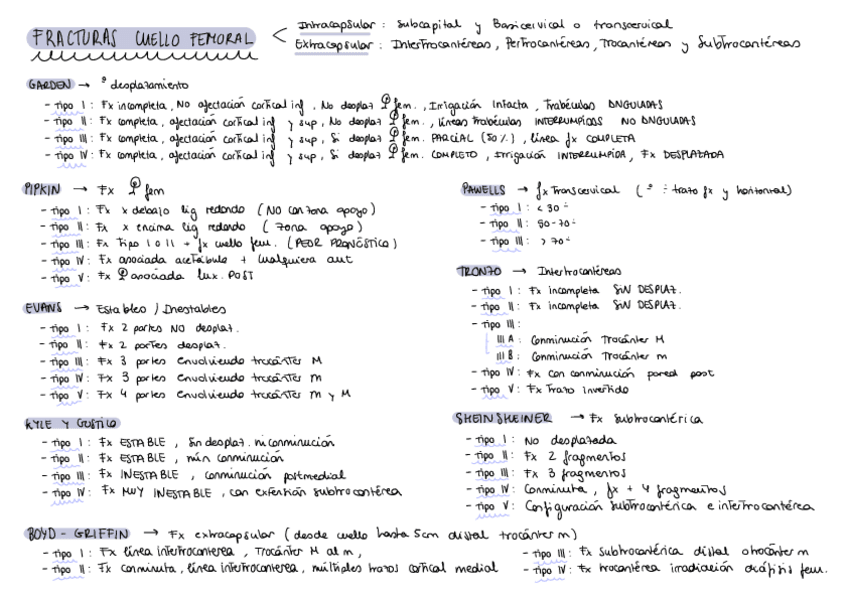 FRACTURAS CUELLO FEMORAL
Intracapsular: subcapital y Basicervical o transcervical
Extracapsular: Intertrocantéreas, Pertrocantéreas, Trocantéreas y Subtrocantéreas
GARDEN → º desplazamiento
- Tipo I: Fx incompleta, No afectación cortical inf, No desplaz fem., Irrigación Intacta, Trabéculas ANGULADAS
- Tipo II: Fx completa, afectación cortical inf y sup, No desplaz fem., líneas trabéculas INTERRUMPIDAS NO ANGULADAS
- Tipo III: Fx completa, afectación cortical inf y sup, Si desplaz fem. PARCIAL (50%), línea fx COMPLETA
- Tipo IV: Fx completa, afectación cortical inf y sup, Si desplaz fem. COMPLETO, Irrigación INTERRUMPIDA, Fx DESPLAZADA
PIPKIN → Fx fem
- Tipo I: Fx x debajo lig redondo (NO con zona apoyo)
- Tipo II: Fx x encima lig redondo (zona apoyo)
- Tipo III: Fx Tipo I o II + fx cuello fem. (PEOR PRONÓSTICO)
- Tipo IV: Fx asociada acetábulo + cualquiera ant
- Tipo V: Fx asociada lux. POST
PAWELLS → fx Transcervical (º ÷ trazo fx y horizontal)
- Tipo I: < 30º
- Tipo II: 50-70º
- Tipo III: > 70º
TRONZO → Intertrocantéreas
- Tipo I: Fx incompleta SIN DESPLAZ.
- Tipo II: Fx incompleta SIN DESPLAZ.
- Tipo III:
III A: Conminución Trocánter M
III B: Conminución Trocánter m
- Tipo IV: Fx con conminución pared post
- Tipo V: Fx Trazo Invertido
EVANS → Estables / Inestables
- Tipo I: Fx 2 partes NO desplaz.
- Tipo II: Fx 2 partes desplaz.
- Tipo III: Fx 3 partes envolviendo trocánter M
- Tipo IV: Fx 3 partes envolviendo trocánter m
- Tipo V: Fx 4 partes envolviendo trocánter m y M
KYLE Y GUSTILO
- Tipo I: Fx ESTABLE, Sin desplaz. ni conminución
- Tipo II: Fx ESTABLE, mín conminución
- Tipo III: Fx INESTABLE, conminución postmedial
- Tipo IV: Fx MUY INESTABLE, con extensión subtrocantérea
SHEINSHEINER → Fx subtrocantérica
- Tipo I: No desplazada
- Tipo II: Fx 2 fragmentos
- Tipo III: Fx 3 fragmentos
- Tipo IV: Conminuta, fx + 4 fragmentos
- Tipo V: Configuración subtrocantérica e intertrocantérea
BOYD - GRIFFIN → Fx extracapsular (desde cuello hasta 5cm distal trocánter m)
- Tipo I: Fx línea intertrocanterea, Trocánter M al m,
- Tipo II: Fx conminuta, línea intertrocanterea, múltiples trazos cortical medial
- Tipo III: Fx subtrocantérica distal a trocánter m
- Tipo IV: Fx trocantérea irradiación diáfisis fem.